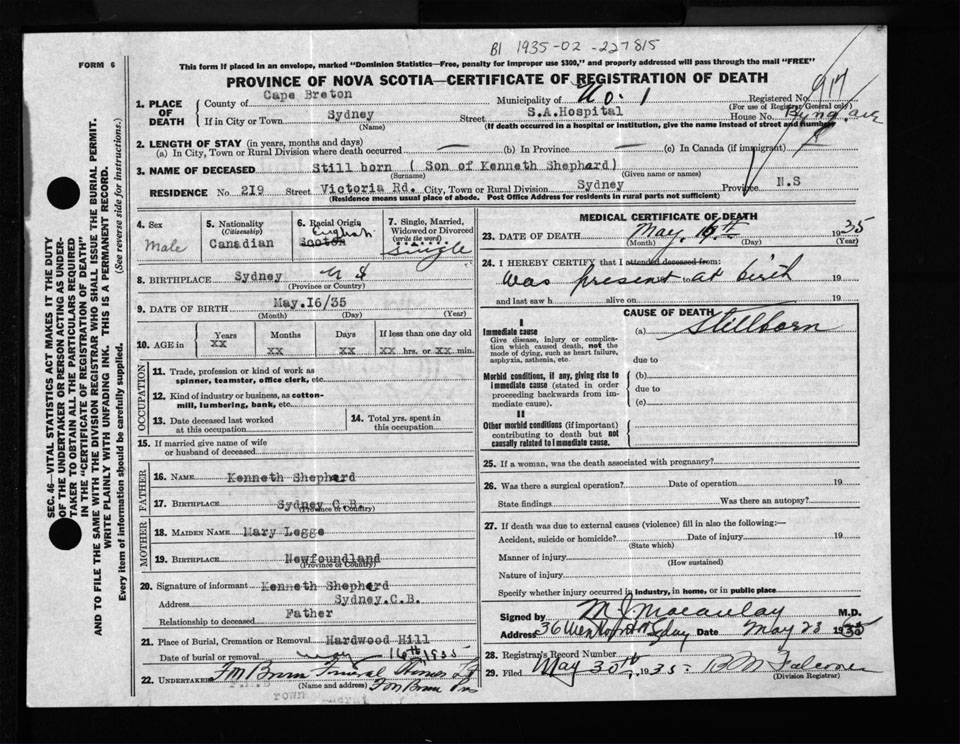 BI 1935-02-227815
FORM 6
This form if placed in an envelope, marked "Dominion Statistics—Free, penalty for improper use $300," and properly addressed will pass through the mail "FREE"
PROVINCE OF NOVA SCOTIA—CERTIFICATE OF REGISTRATION OF DEATH
1. PLACE OF DEATH
County of Cape Breton Municipality of No. 1 Registered No. 917
(For use of Registrar General only)
If in City or Town Sydney Street S.A.Hospital House No.
(Name) (If death occurred in a hospital or institution, give the name instead of street and number)
2. LENGTH OF STAY (in years, months and days)
(a) In City, Town or Rural Division where death occurred — (b) In Province — (c) In Canada (if immigrant)
3. NAME OF DECEASED Still born ( Son of Kenneth Shephard)
(Surname) (Given name or names)
RESIDENCE No. 219 Street Victoria Rd. City, Town or Rural Division Sydney Province N.S
(Residence means usual place of abode. Post Office Address for residents in rural parts not sufficient)
4. Sex
Male
5. Nationality
(Citizenship)
Canadian
6. Racial Origin
English
Scotch
7. Single, Married, Widowed or Divorced
(write the word)
Single
8. BIRTHPLACE Sydney N S
(Province or Country)
9. DATE OF BIRTH May.16/35
(Month) (Day) (Year)
10. AGE in
Years Months Days If less than one day old
XX XX XX XX hrs. or XX min.
OCCUPATION
11. Trade, profession or kind of work as spinner, teamster, office clerk, etc.
12. Kind of industry or business, as cotton-mill, lumbering, bank, etc.
13. Date deceased last worked at this occupation
14. Total yrs. spent in this occupation
15. If married give name of wife or husband of deceased
FATHER
16. NAME Kenneth Shephard
17. BIRTHPLACE Sydney C.B.
(Province or Country)
MOTHER
18. MAIDEN NAME Mary Legge
19. BIRTHPLACE Newfoundland
(Province or Country)
20. Signature of informant Kenneth Shepherd
Address Sydney.C.B.
Relationship to deceased Father
21. Place of Burial, Cremation or Removal Hardwood Hill
Date of burial or removal May 16th 1935
22. UNDERTAKER
(Name and address)
MEDICAL CERTIFICATE OF DEATH
23. DATE OF DEATH May. 16th 1935
(Month) (Day) (Year)
24. I HEREBY CERTIFY that I attended deceased from:
was present at birth 19
and last saw h alive on 19
CAUSE OF DEATH
I
Immediate cause (a) Stillborn
Give disease, injury or complication which caused death, not the mode of dying, such as heart failure, asphyxia, asthenia, etc.
due to
Morbid conditions, if any, giving rise to immediate cause (stated in order proceeding backwards from immediate cause).
(b)
due to
(c)
II
Other morbid conditions (if important) contributing to death but not causally related to immediate cause.
25. If a woman, was the death associated with pregnancy?
26. Was there a surgical operation? Date of operation 19
State findings Was there an autopsy?
27. If death was due to external causes (violence) fill in also the following:—
Accident, suicide or homicide? Date of injury 19
(State which)
Manner of injury
(How sustained)
Nature of injury
Specify whether injury occurred in industry, in home, or in public place
Signed by M. J. Macaulay M.D.
Address Sydney Date May 23 1935
28. Registrar's Record Number
29. Filed May 30th 1935
(Division Registrar)
SEC. 46—VITAL STATISTICS ACT MAKES IT THE DUTY
OF THE UNDERTAKER OR PERSON ACTING AS UNDER-
TAKER TO OBTAIN ALL THE PARTICULARS REQUIRED
IN THE "CERTIFICATE OF REGISTRATION OF DEATH"
AND TO FILE THE SAME WITH THE DIVISION REGISTRAR WHO SHALL ISSUE THE BURIAL PERMIT.
WRITE PLAINLY WITH UNFADING INK. THIS IS A PERMANENT RECORD.
Every item of information should be carefully supplied. (See reverse side for instructions.)